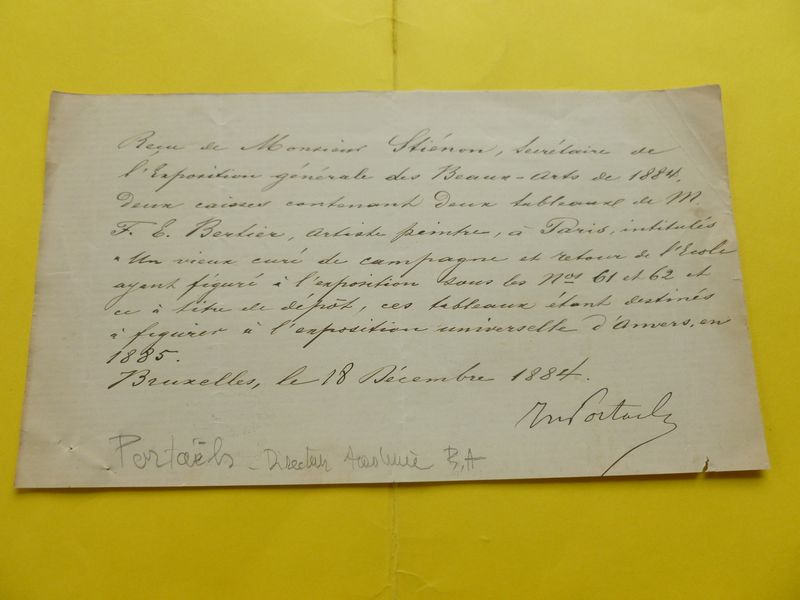 Reçu de Monsieur Stiénon, secrétaire de
l'Exposition générale des Beaux-Arts de 1884,
deux caisses contenant deux tableaux de M.
F. E. Bertier, artiste peintre, à Paris, intitulés
"Un vieux curé de campagne et retour de l'Ecole
ayant figuré à l'exposition sous les Nos 61 et 62 et
ce à titre de dépôt, ces tableaux étant destinés
à figurer à l'exposition universelle d'Anvers, en
1885.
Bruxelles, le 18 Décembre 1884.
Portaels
Portaëls - Directeur Académie B.A